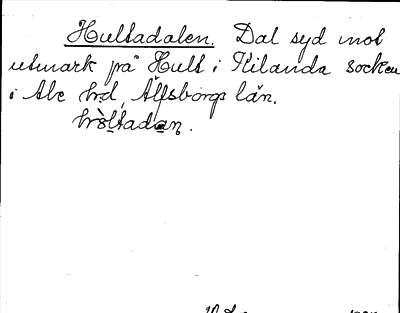 Hultadalen. Dal syd mot
utmark på Hult i Kilanda socken
i Ale hd, Älfsborgs län.